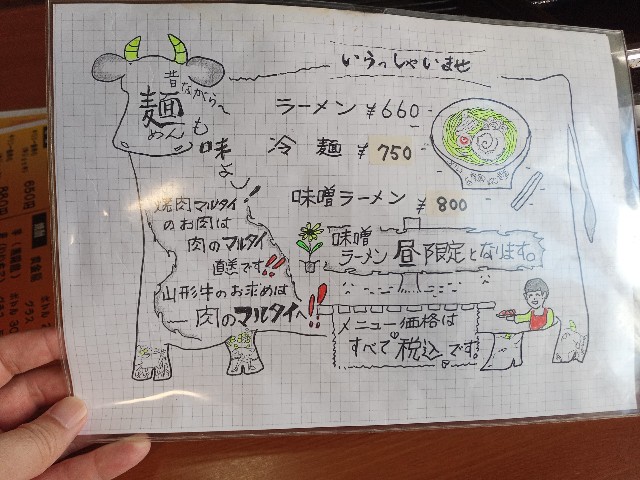 いらっしゃいませ
昔ながら〜
麺も
めん
味よし!!
ラーメン ¥660
冷麺 ¥750
味噌ラーメン ¥800
味噌
ラーメン 昼限定となります。
焼肉マルタイ
のお肉は
肉のマルタイ
直送です!!
山形牛のお求めは
肉のマルタイへ!!
メニュー価格は
すべて税込です。